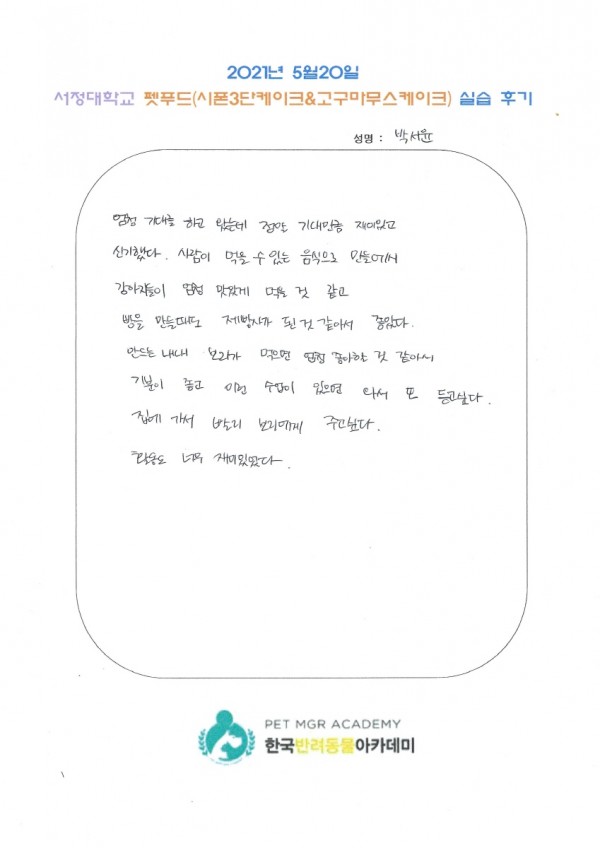 2021년 5월20일
서정대학교 펫푸드(시폰3단케이크&고구마무스케이크) 실습 후기
성명 : 박서윤
엄청 기대를 하고 왔는데 정말 기대만큼 재미있고
신기했다. 사람이 먹을 수 있는 음식으로 만들어서
강아지들이 엄청 맛있게 먹을 것 같고
빵을 만들때도 제빵사가 된 것 같아서 좋았다.
만드는 내내 보리가 먹으면 엄청 좋아할 것 같아서
기분이 좋고 이런 수업이 있으면 와서 또 듣고싶다.
집에 가서 빨리 보리에게 주고싶다.
너무 재미있었다.
PET MGR ACADEMY
한국반려동물아카데미